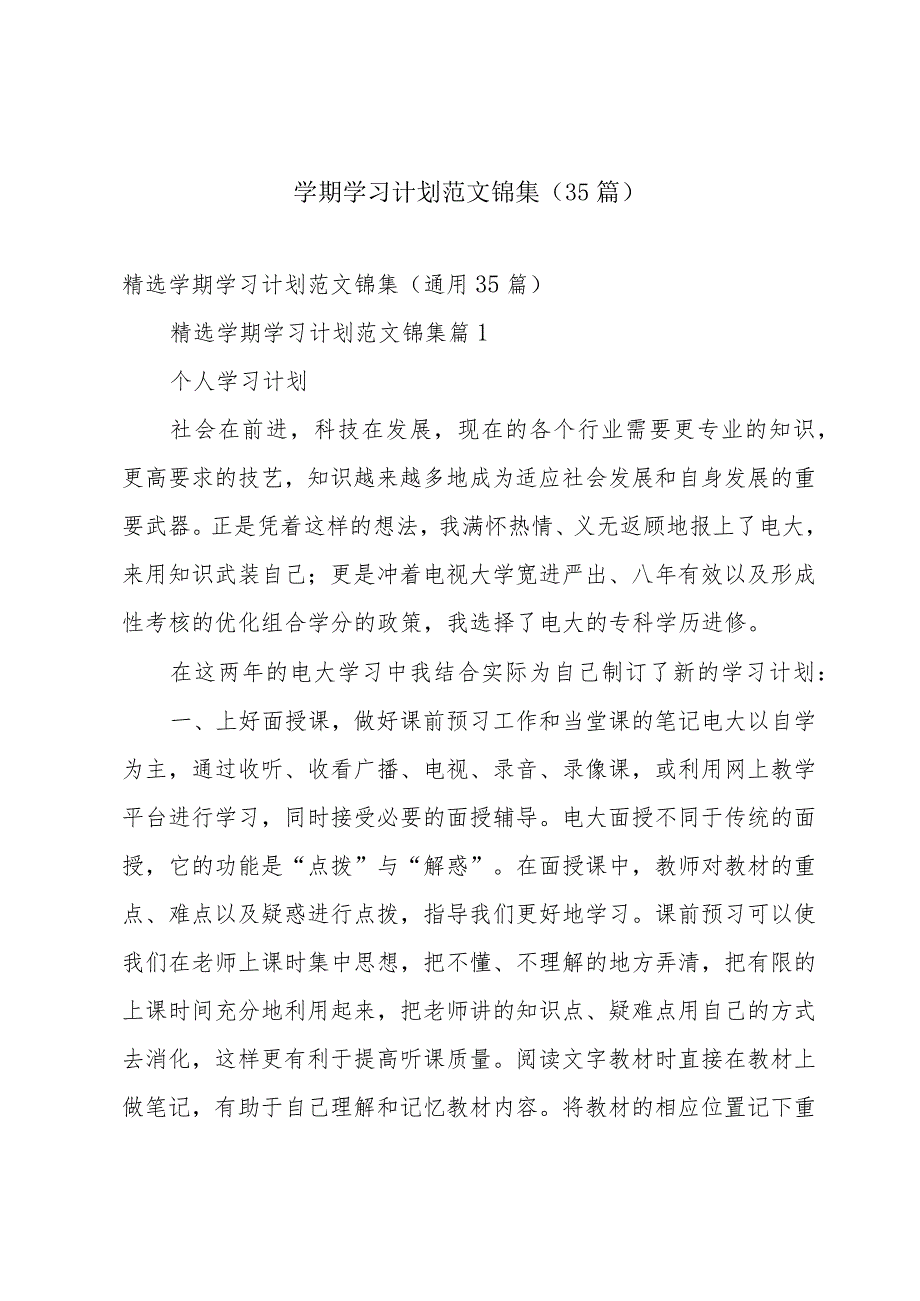 学期学习计划范文锦集（35 篇）
精选学期学习计划范文锦集（通用 35 篇）
精选学期学习计划范文锦集篇 1
个人学习计划
社会在前进，科技在发展，现在的各个行业需要更专业的知识，
更高要求的技艺，知识越来越多地成为适应社会发展和自身发展的重
要武器。正是凭着这样的想法，我满怀热情、义无返顾地报上了电大，
来用知识武装自己；更是冲着电视大学宽进严出、八年有效以及形成
性考核的优化组合学分的政策，我选择了电大的专科学历进修。
在这两年的电大学习中我结合实际为自己制订了新的学习计划：
一、上好面授课，做好课前预习工作和当堂课的笔记电大以自学
为主，通过收听、收看广播、电视、录音、录像课，或利用网上教学
平台进行学习，同时接受必要的面授辅导。电大面授不同于传统的面
授，它的功能是“点拨”与“解惑”。在面授课中，教师对教材的重
点、难点以及疑惑进行点拨，指导我们更好地学习。课前预习可以使
我们在老师上课时集中思想，把不懂、不理解的地方弄清，把有限的
上课时间充分地利用起来，把老师讲的知识点、疑难点用自己的方式
去消化，这样更有利于提高听课质量。阅读文字教材时直接在教材上
做笔记，有助于自己理解和记忆教材内容。将教材的相应位置记下重